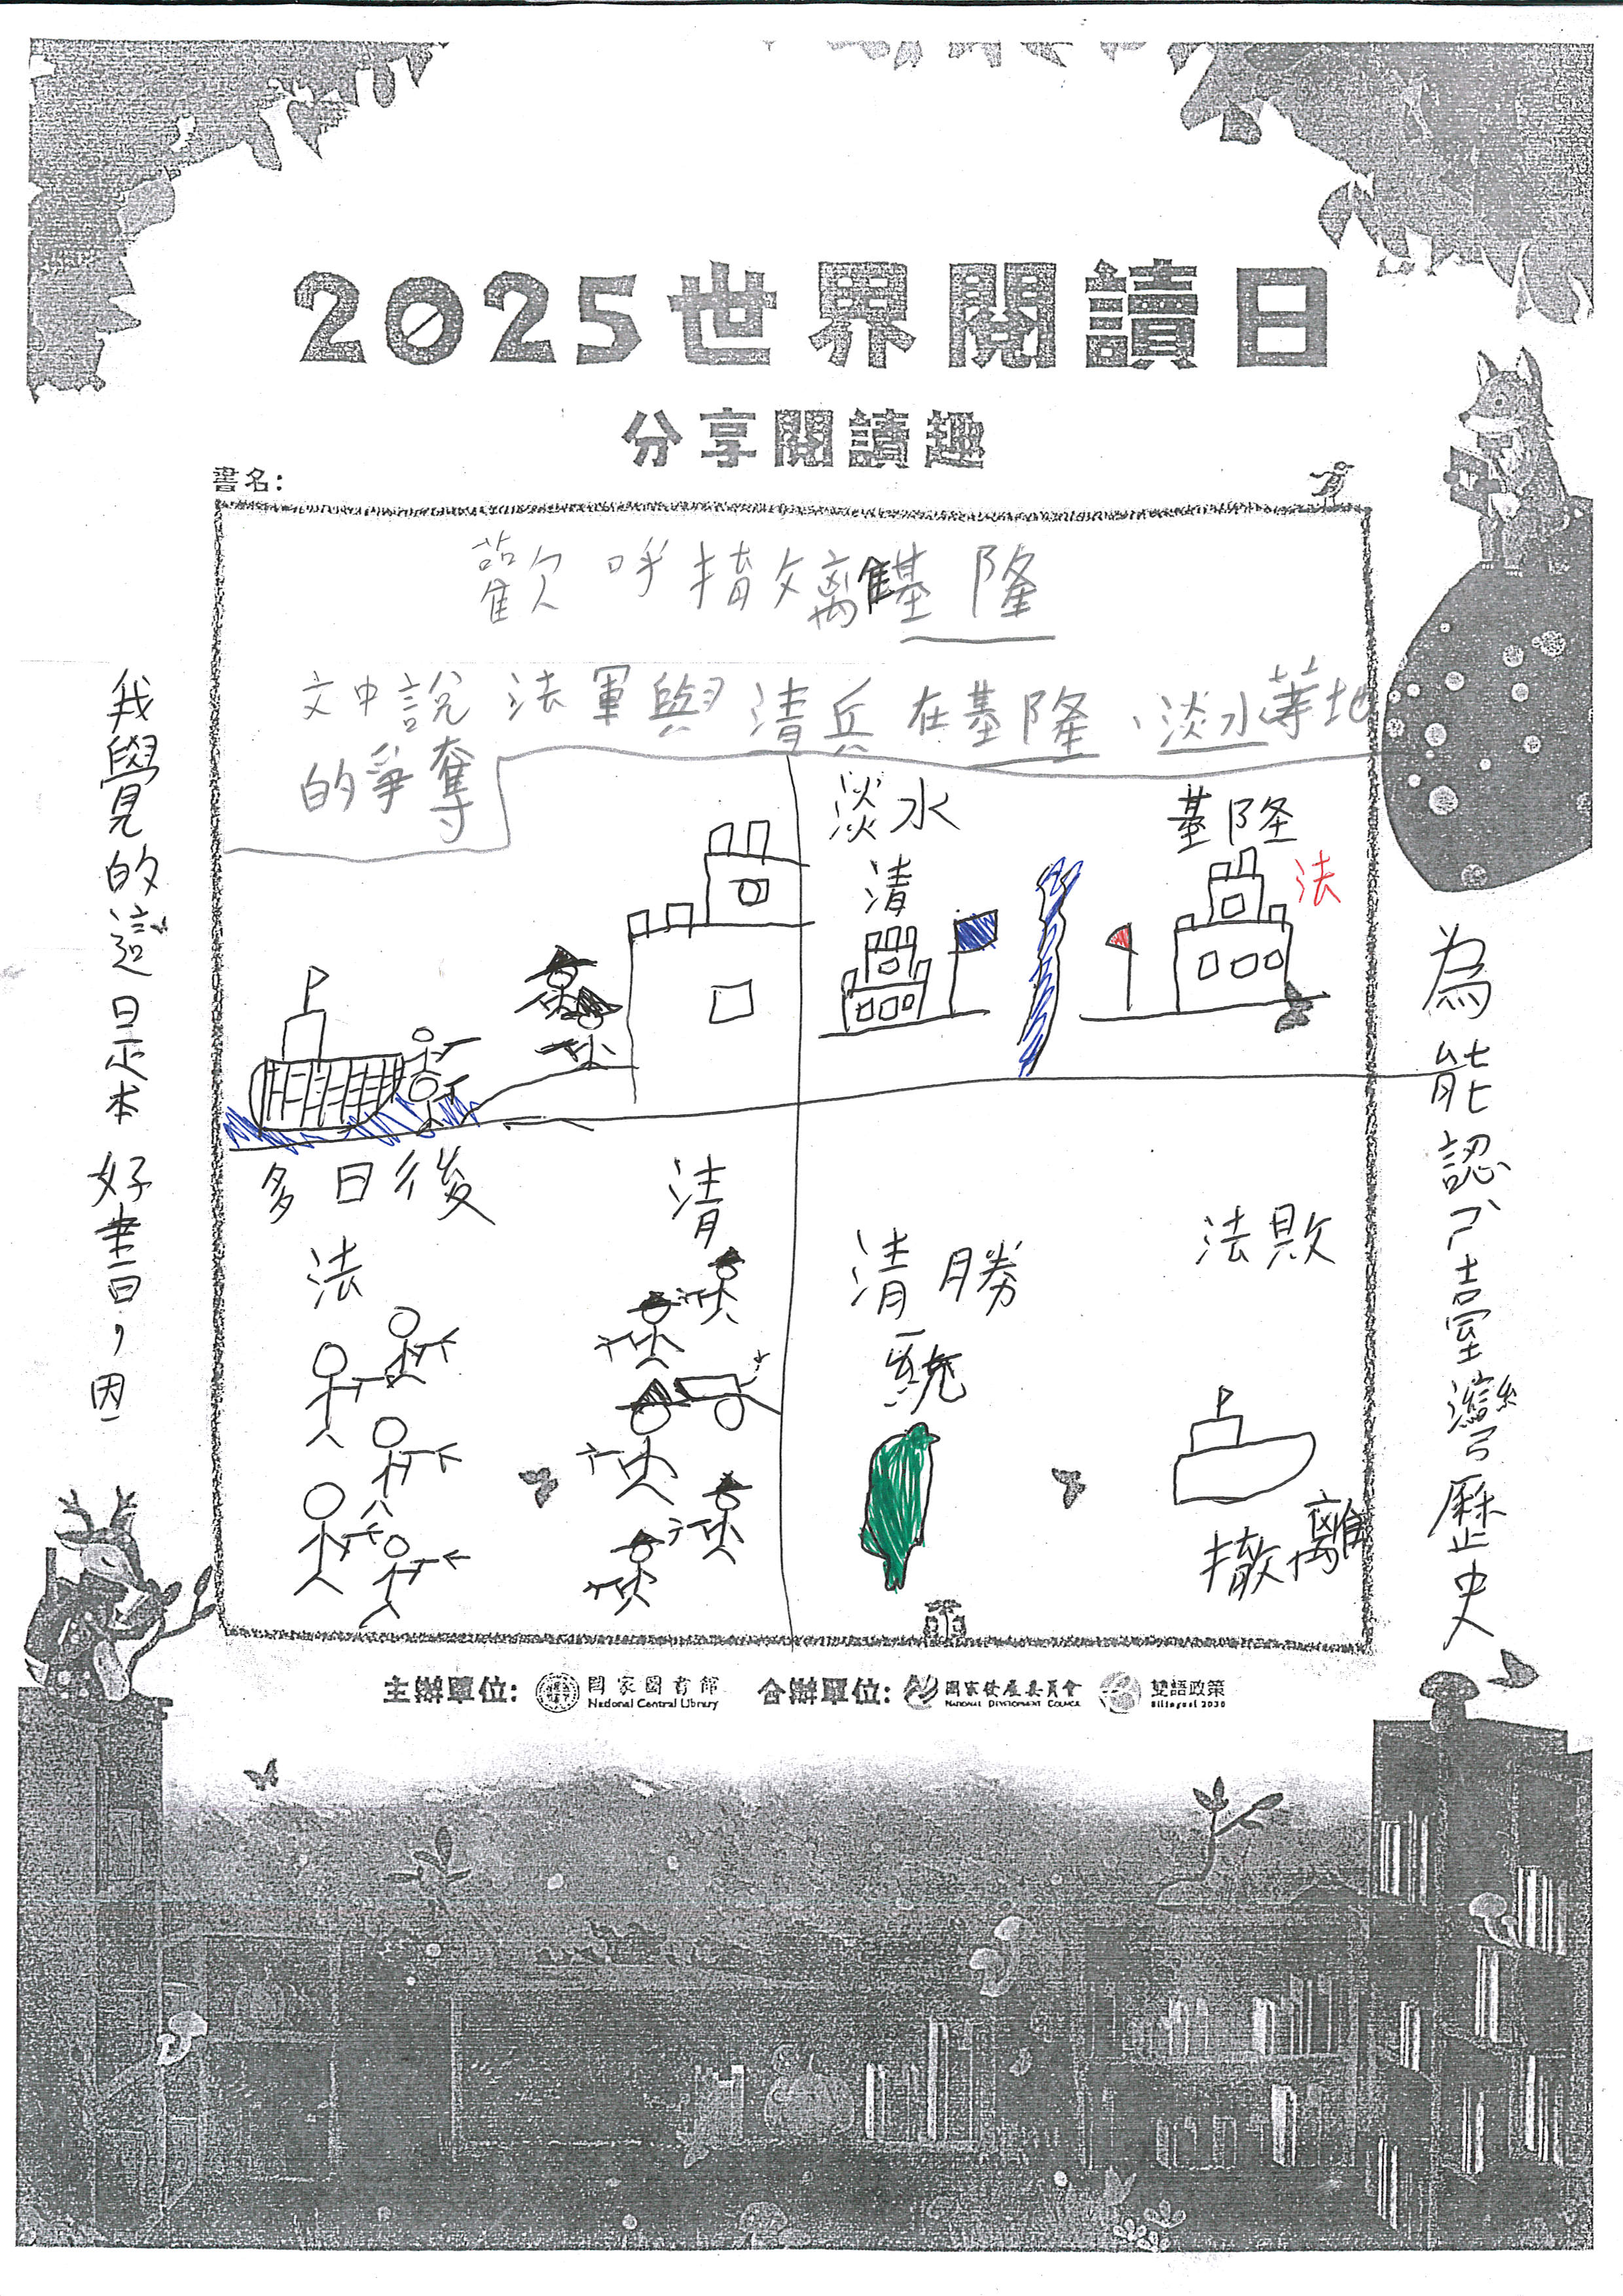 2025世界閱讀日
分享閱讀趣
書名:
歡呼撤離基隆
文中說法軍與清兵在基隆、淡水等地
的爭奪
淡水
清
基隆
法
多日後
法
清
清勝
法敗
撤離
我覺的這是本好書,因
為能認ㄕ臺灣歷史
主辦單位:
國家圖書館
National Central Library
合辦單位:
國家發展委員會
NATIONAL DEVELOPMENT COUNCIL
雙語政策
Bilingual 2030